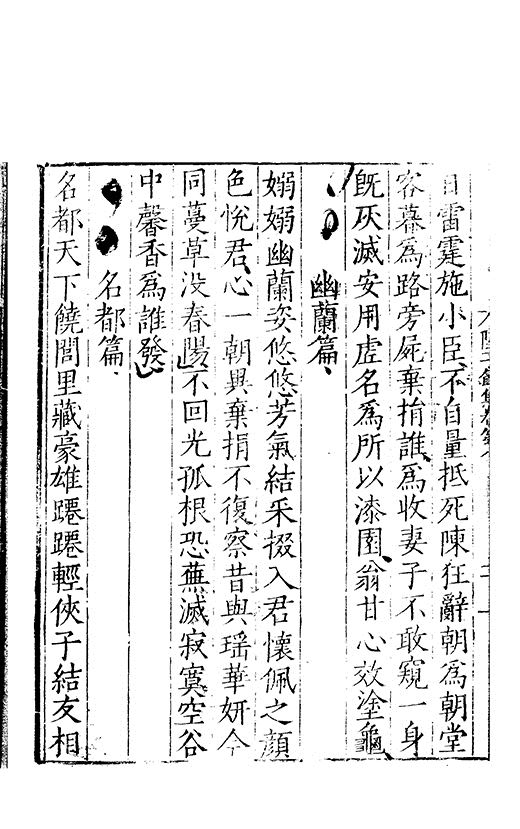 雷霆施小臣不自量抵死陳狂辭朝為朝堂
客暮為路旁屍棄捐誰為收妻子不敢窺一身
既灰滅安用虛名為所以漆園翁甘心效塗龜
幽蘭篇
嫋嫋幽蘭姿悠悠芳氣結采掇入君懷佩之顔
色悅君心一朝異棄捐不復察昔與瑶華妍今
同蔓草没春陽不回光孤根恐蕪滅寂寞空谷
中馨香為誰發
名都篇
名都天下饒閭里藏豪雄躚躚輕俠子結友相